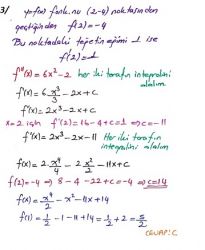 3/ y=f(x) fonk.nu (2,-4) noktasından
geçtiğinden f(2)=-4
Bu noktadaki teğetin eğimi 1 ise
f'(2)=1
f''(x)=6x²-2 her iki tarafın integralini alalım
f'(x)=6·x³/3-2x+c
f'(x)=2x³-2x+c
x=2 için f'(2)=16-4+c=1 ⇒ c=-11
f'(x)=2x³-2x-11 Her iki tarafın integralini alalım
f(x)=2·x⁴/4-2x²/2-11x+C
f(2)=-4 ⇒ 8-4-22+c=-4 ⇒ c=14
f(x)=x⁴/2-x²-11x+14
f(1)=1/2-1-11+14=1/2+2=5/2
CEVAP: C